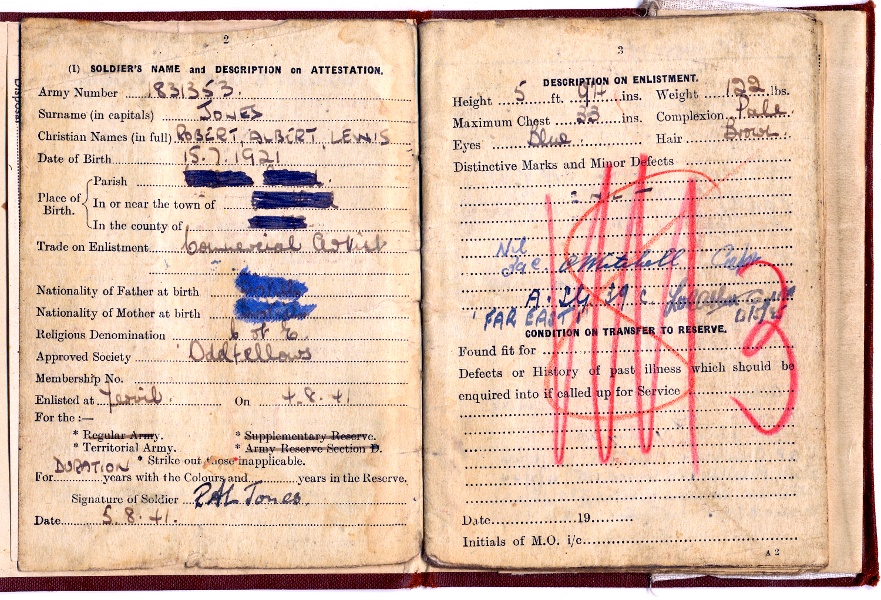 2
(I) SOLDIER'S NAME and DESCRIPTION on ATTESTATION.
Army Number 1831353.
Surname (in capitals) JONES
Christian Names (in full) ROBERT, ALBERT, LEWIS
Date of Birth 15.7.1921
Place of Birth.
Parish
In or near the town of
In the county of
Trade on Enlistment Commercial Artist
Nationality of Father at birth
Nationality of Mother at birth
Religious Denomination C of E.
Approved Society Oddfellows
Membership No.
Enlisted at Yeovil. On 4.8.41
For the :—
* Regular Army. * Supplementary Reserve.
* Territorial Army. * Army Reserve Section D.
* Strike out those inapplicable.
For DURATION years with the Colours and years in the Reserve.
Signature of Soldier RAL Jones
Date 5.8.41.
3
DESCRIPTION ON ENLISTMENT.
Height 5 ft. 9¼ ins. Weight 122 lbs.
Maximum Chest 33 ins. Complexion Pale
Eyes Blue. Hair Brown.
Distinctive Marks and Minor Defects
Nil
Mitchell Capt
"FAR EAST"
CONDITION ON TRANSFER TO RESERVE.
Found fit for
Defects or History of past illness which should be
enquired into if called up for Service
3
Date 19
Initials of M.O. i/c
A 2